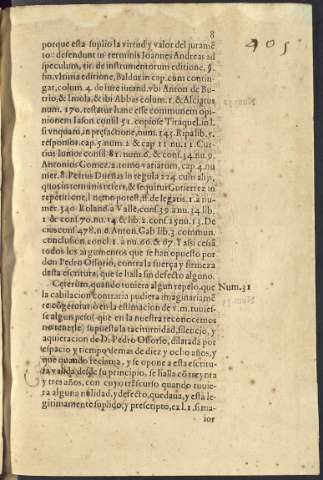 8
405
porque esta suplio la virtud y valor del juramẽ
to: defendunt in terminis Joannes Andreas ad
speculum, tit. de instrumentorum editione, §.
fin. vltima editione, Baldus in cap. cum contin-
gat, colum. 4. de iure iurand. vbi Anton. de Bu-
trio, & Imola, & ibi Abbas colum. 1. & Alciatus
num. 170. testatur hanc esse communem opi-
nionem Iason consil 51. copiose Tiraquel. in l.
si vnquam, in præfactione, num. 143. Ripa lib. 1.
responsor. cap. 5 num. 2. & cap 11 nu. 11. Cur-
tius Iunior consil 81. num. 6. & cons. 34. nu. 9.
Antonius Gomez 2. tomo variarum, cap. 4. nu
mer. 8. Petrus Dueñas in regula 224. cum aliis,
quos in terminis refert, & sequitur Gutierrez in
repetitione, l. nemo potest, ff. de legatis. 1. à nu-
mer 340. Roland. à Valle, cons. 39. à nu. 34. lib.
1. & cons. 70. nu. 14. & lib. 2. cons. 25. nu. 13. De
cius cons. 478. n. 6. Anton. Gab lib. 3. commun.
conclusion. concl. 1. à nu. 60. & 67. Y assi cessã
todos los argumentos que se han opuesto por
don Pedro Ossorio, contra la fuerça y firmeza
desta escritura, que se halla sin defecto alguno.
Cęterum, quando tuuiera algun repelo, que Num. 31
la cabilacion contraria pudiera imaginariamẽ
te cõgeturar, ò en la estimacion de v. m. tuuies-
se algun peso (que en la nuestra reconocemos
no tenerle) supuesta la taciturnidad, silencio, y
aquietacion de D. Pedro Ossorio, dilatada por
espacio y tiempo de mas de diez y ocho años, y
que quando reclama, y se opone a esta escritu-
ra valida desde su principio, se halla cõ treynta
y tres años, con cuyo trãscurso quando tuuie-
ra alguna nulidad, y defecto, quedaua, y està le-
gitimamente suplido, y prescripto, ex l. 1. si ma-
ior